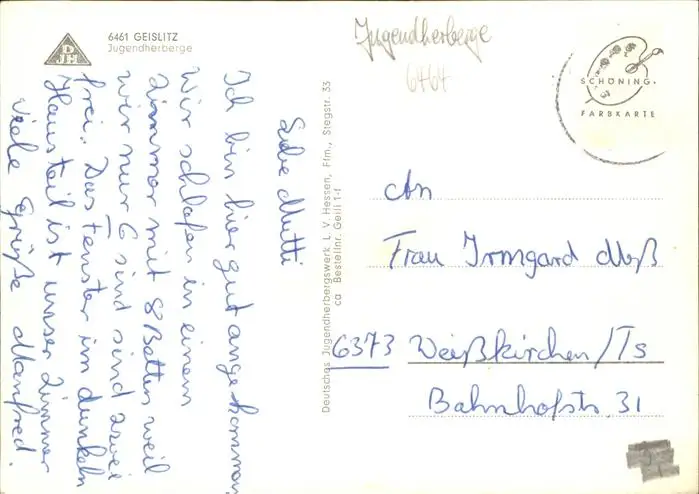 6461 GEISLITZ
Jugendherberge
DJH
Jugendherberge
6464
SCHÖNING
FARBKARTE
Liebe Mutti
Ich bin hier gut angekommen
Wir schlafen in einem
Zimmer mit 8 Betten weil
wir nur 6 sind sind zwei
frei. Das Fenster im dunkeln
Hausteil ist unser Zimmer
Viele Grüße Manfred.
Deutsches Jugendherbergswerk L. V. Hessen, Ffm., Stegstr. 33
ca Bestellnr. Geili 1-f
An
Frau Irmgard Moß
6373 Weißkirchen/Ts
Bahnhofstr. 31